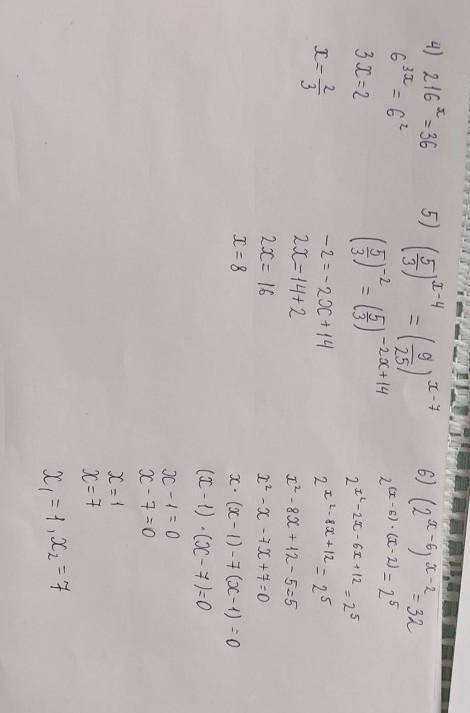 4) 216^x = 36
6^{3x} = 6^2
3x = 2
x = 2/3
5) (5/3)^{x-4} = (9/25)^{x-7}
(5/3)^{-2} = (5/3)^{-2x+14}
-2 = -2x + 14
2x = 14 + 2
2x = 16
x = 8
6) (2^{x-6})^{x-2} = 32
2^{(x-6)·(x-2)} = 2^5
2^{x²-2x-6x+12} = 2^5
2^{x²-8x+12} = 2^5
x² - 8x + 12 - 5 = 5
x² - x - 7x + 7 = 0
x·(x-1) - 7(x-1) = 0
(x-1)·(x-7) = 0
x - 1 = 0
x - 7 = 0
x = 1
x = 7
x₁ = 1, x₂ = 7